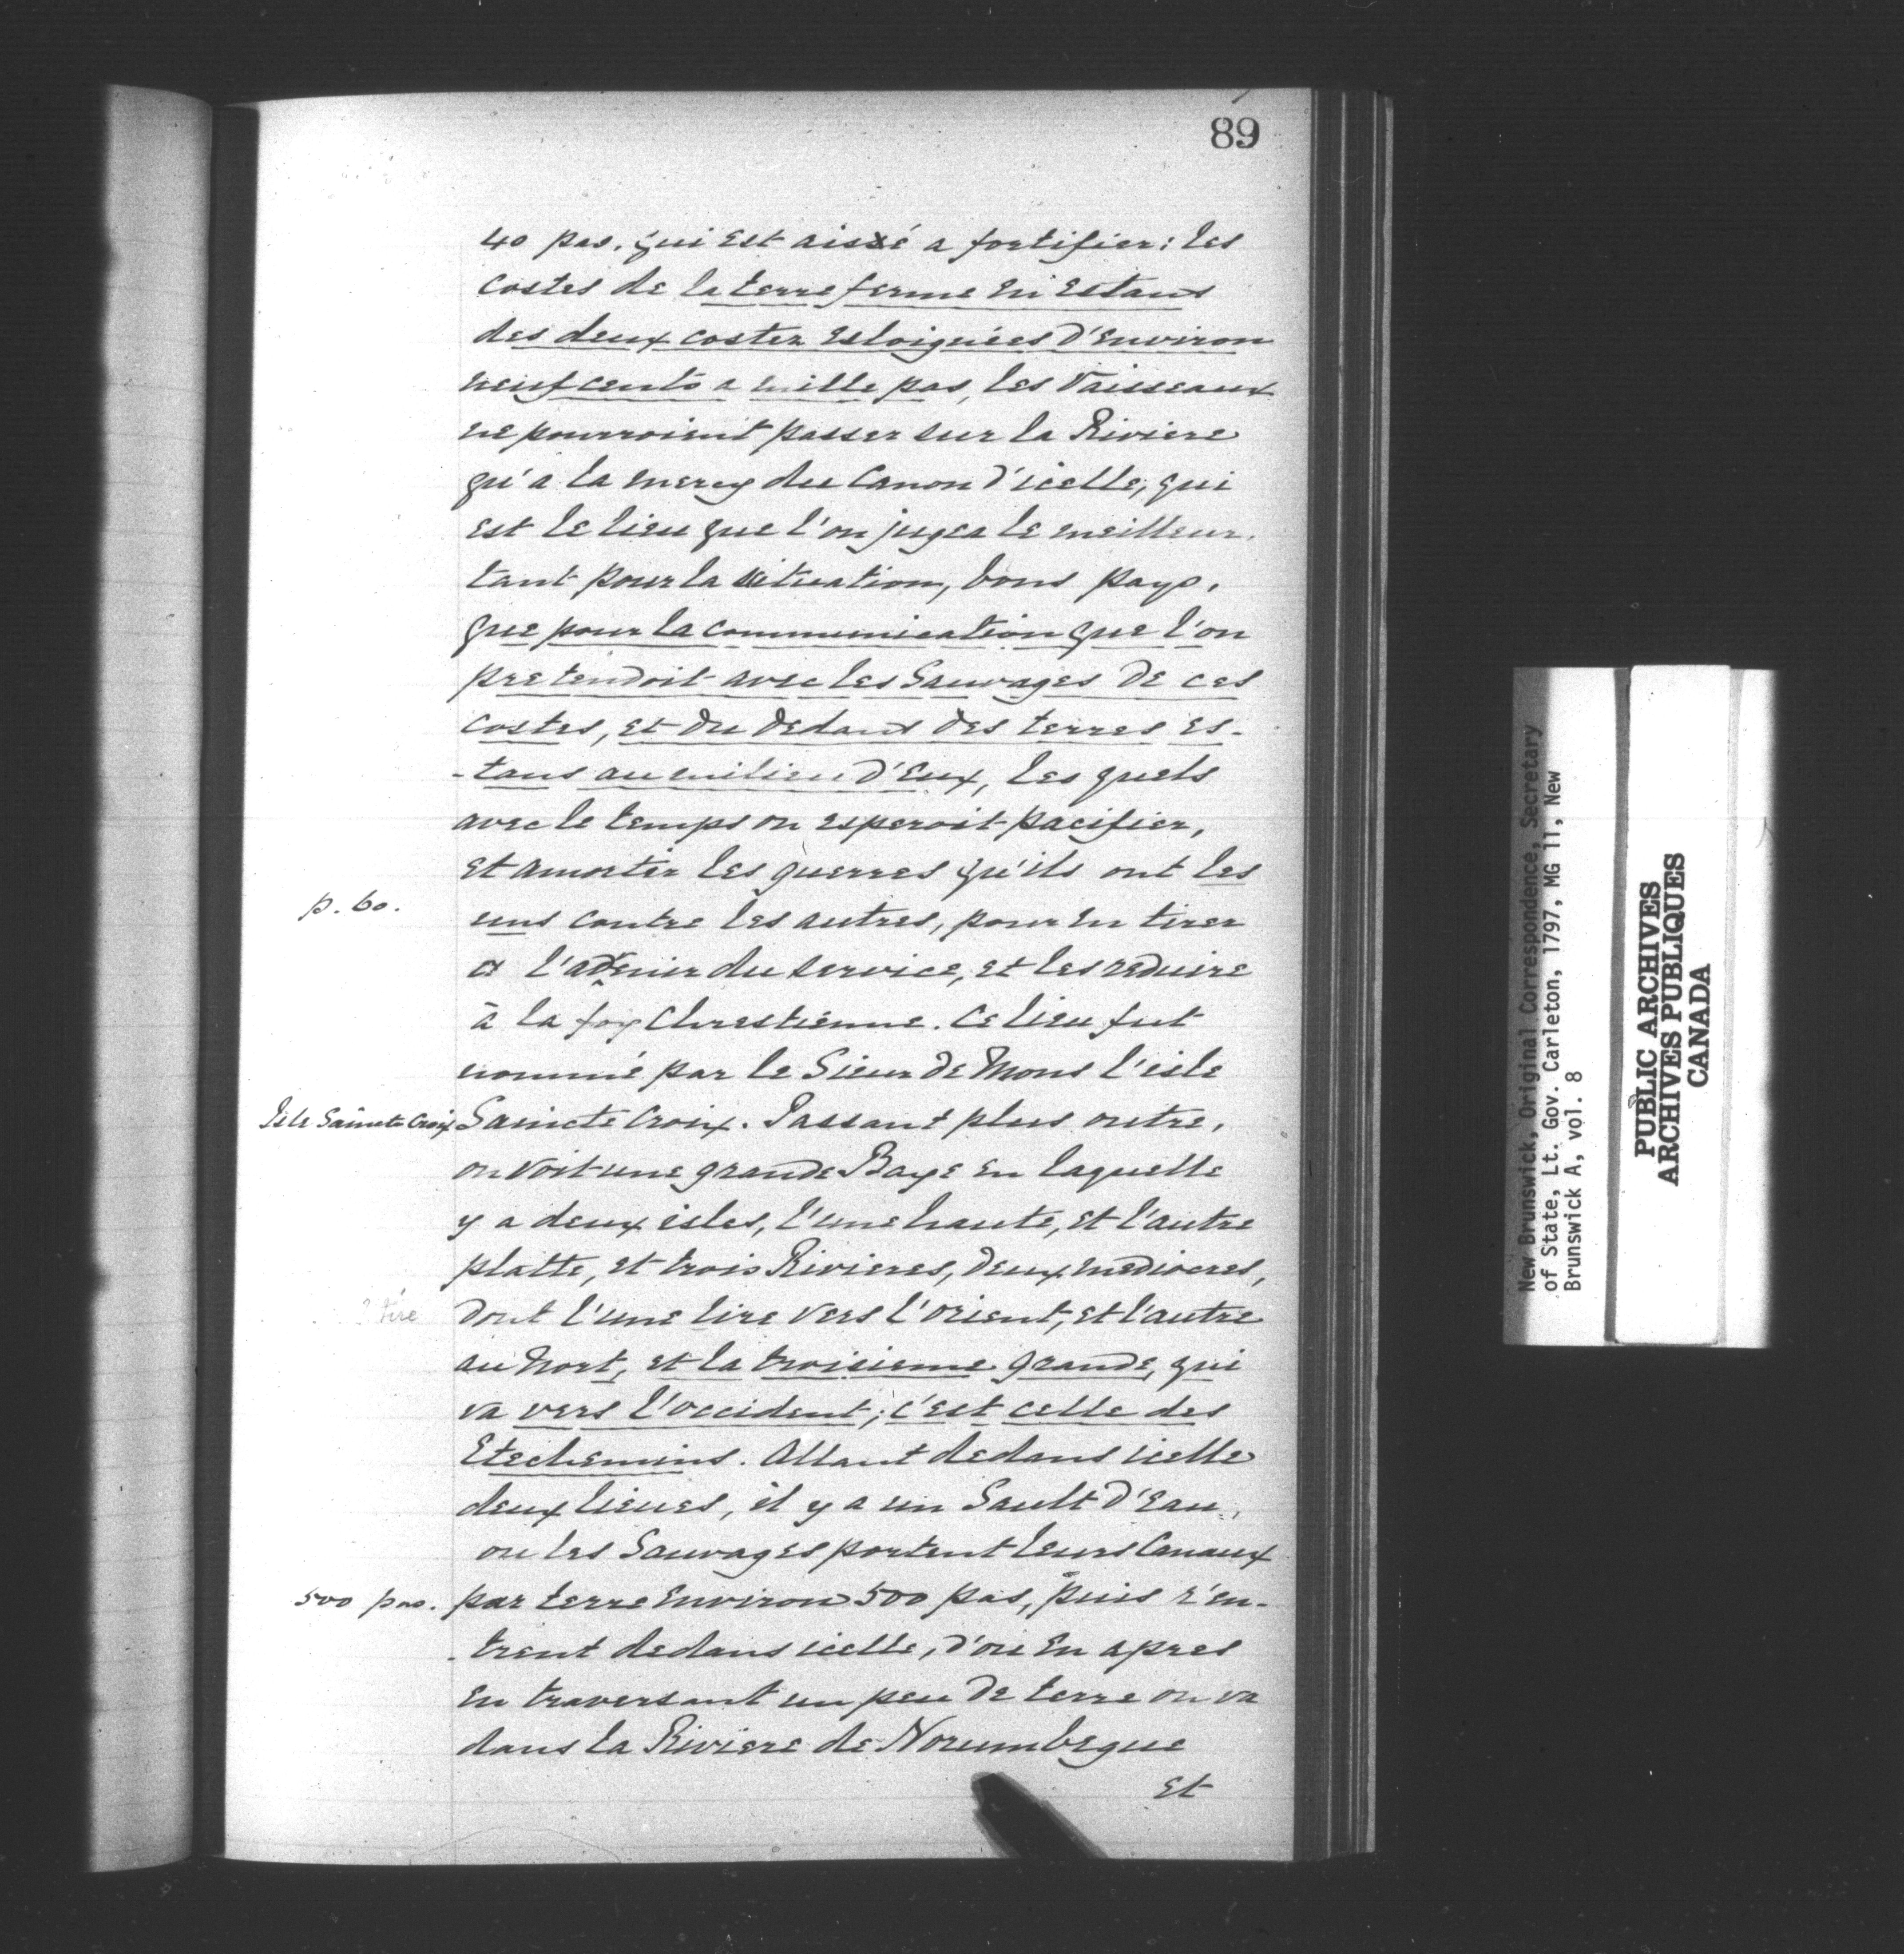 89
40 pas. qui est aisé a fortifier: les
costes de la terre ferme en estans
des deux costez esloignées d'environ
neuf cents a mille pas, les Vaisseaux
ne pourroient passer sur la Riviere
qu'a la mercy du Canon d'icelle, qui
est le lieu que l'on jugea le meilleur.
tant pour la situation, bons pays,
que pour la communication que l'on
pretendoit avec les Sauvages de ces
costes, et du dedans des terres es-
-tans au milieu d'eux, les quels
avec le temps on esperoit pacifier,
et amortir les guerres qu'ils ont les
p. 60.
uns contre les autres, pour en tirer
a l'advenir du service, et les reduire
à la foy Chrestienne. Ce lieu fut
nommé par le Sieur de Mons l'isle
Isle Saincte Croix
Saincte Croix. Passant plus outre,
on voit une grande Baye en laquelle
y a deux isles, l'une haute, et l'autre
platte, et trois Rivieres, deux mediocres,
? tire
dont l'une lire vers l'orient, et l'autre
au Nort, et la troisieme grande, qui
va vers l'occident; c'est celle des
Etechemins. Allant dedans icelle
deux lieues, il y a un Sault d'eau,
ou les Sauvages portent leurs Canaux
500 pas.
par terre environ 500 pas, puis r'en-
-trent dedans icelle, d'ou en apres
en traversant un peu de terre on va
dans la Riviere de Norumbegue
et
New Brunswick, Original Correspondence, Secretary
of State, Lt. Gov. Carleton, 1797, MG 11, New
Brunswick A, vol. 8
PUBLIC ARCHIVES
ARCHIVES PUBLIQUES
CANADA